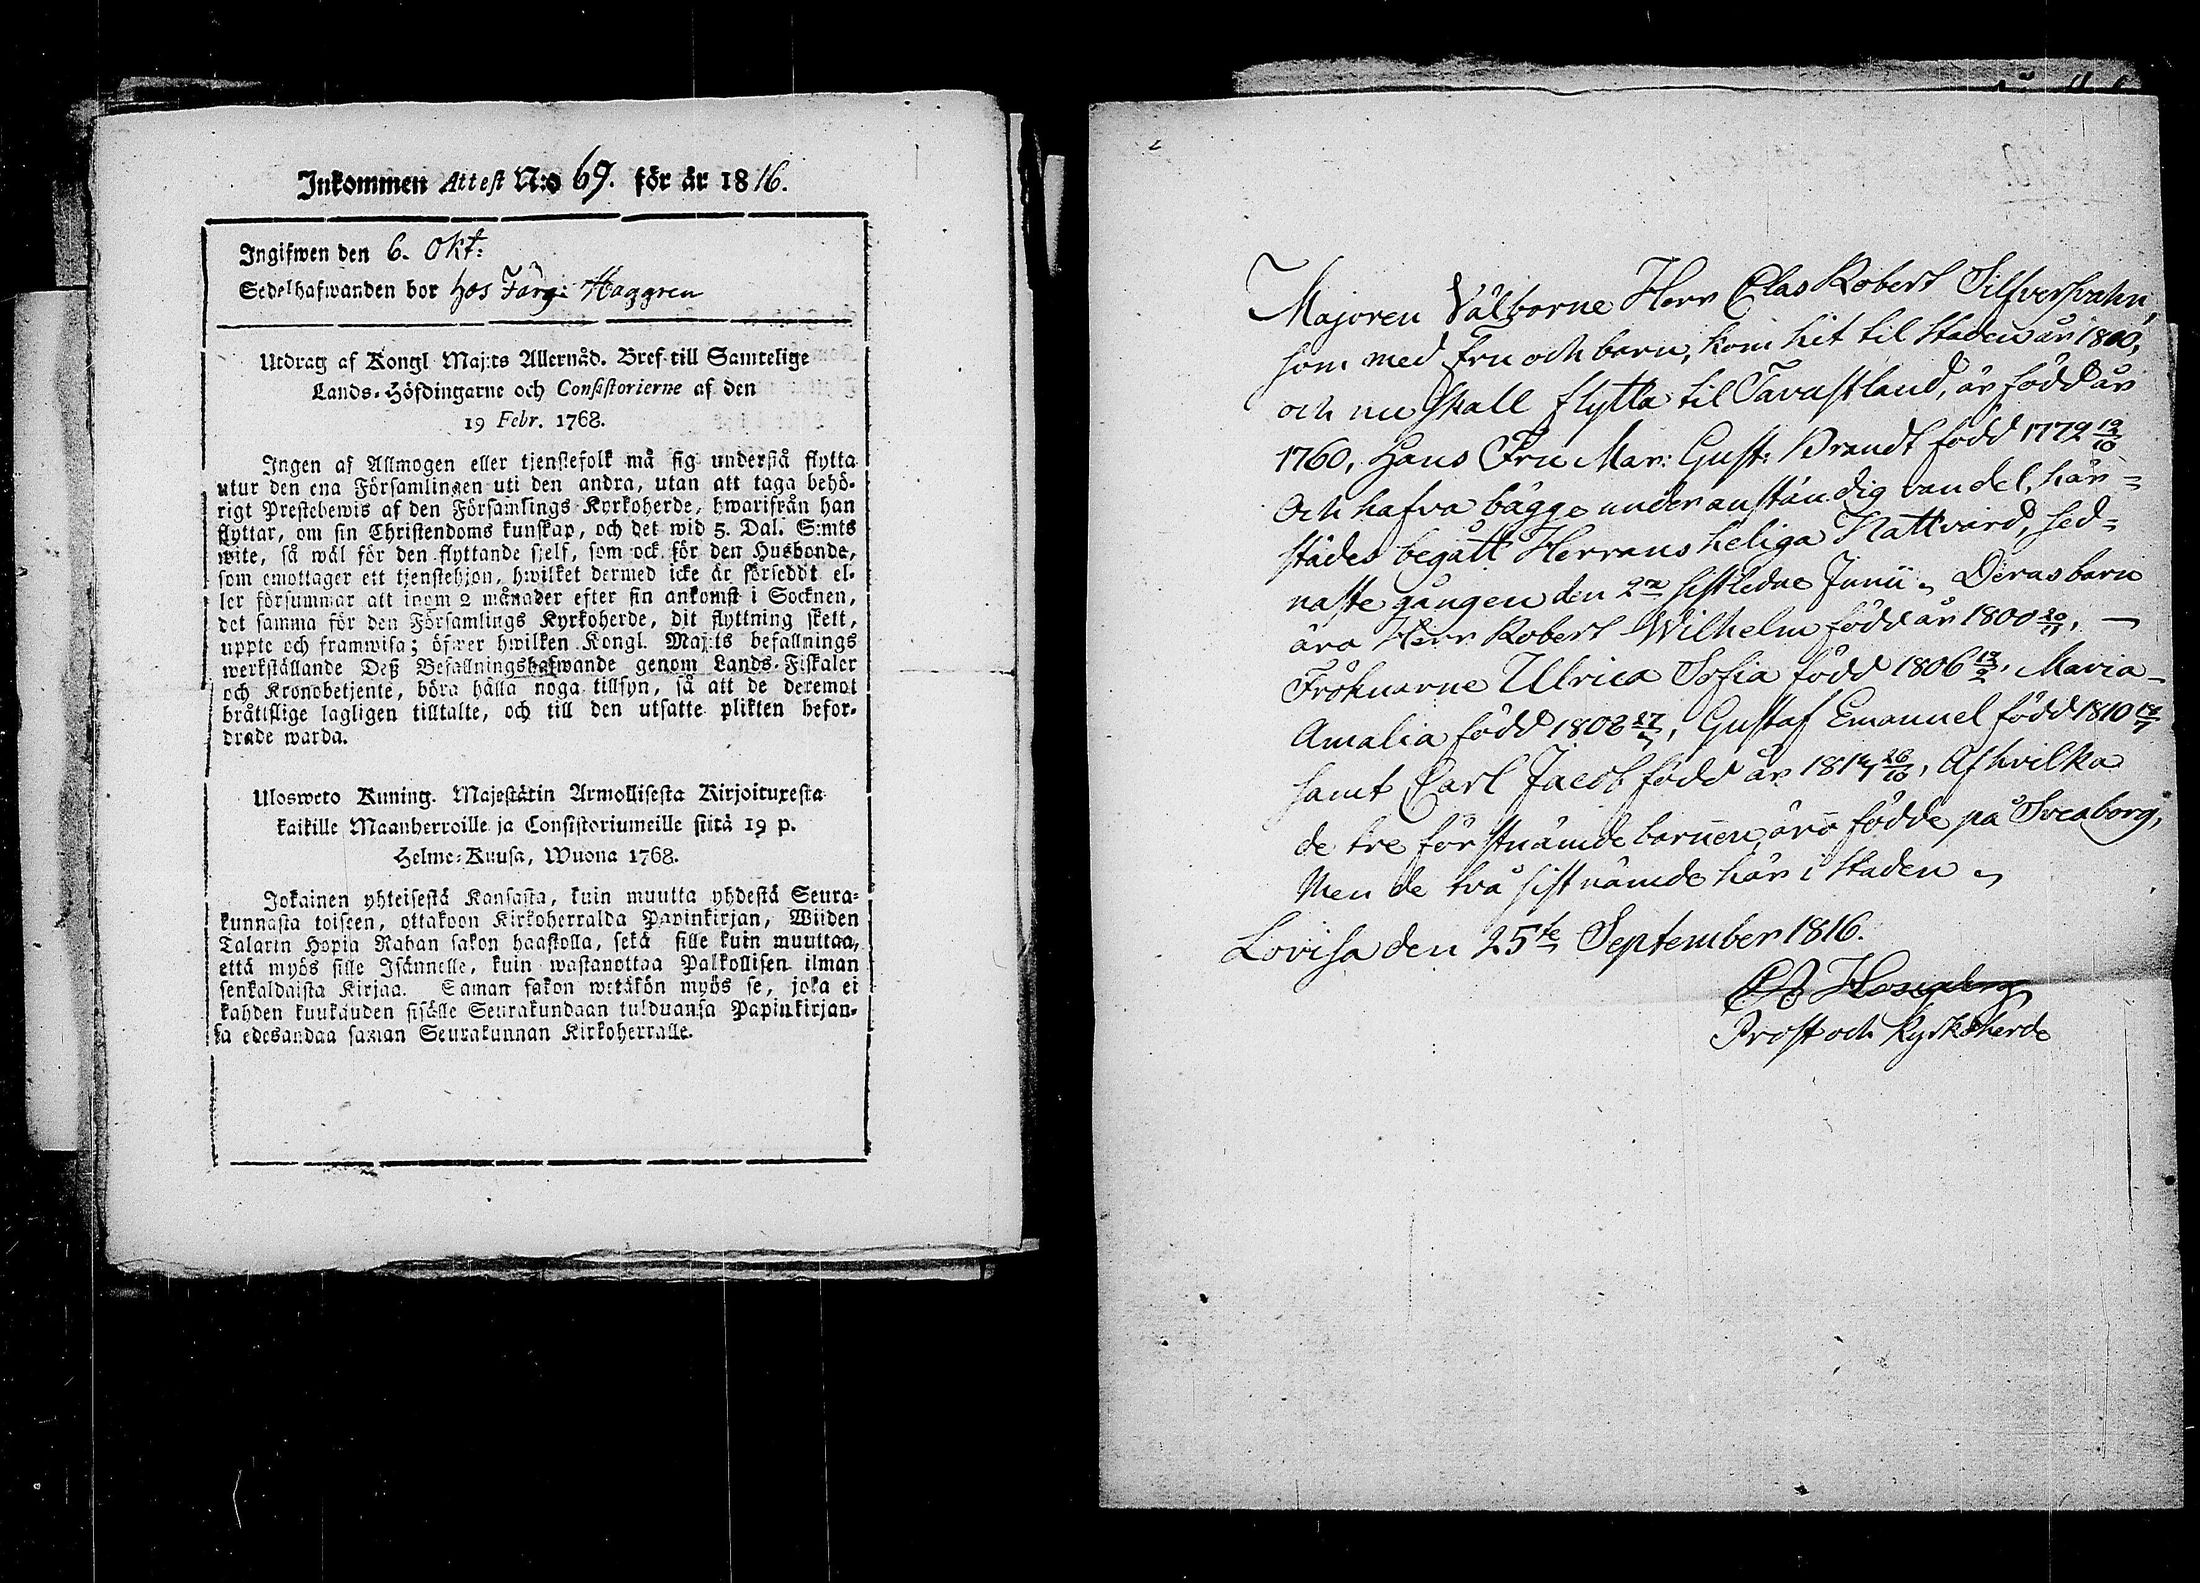 Inkommen Attest N:o 69. för år 1816.
Ingifwen den 6. Okt:
Sedelhafwanden bor hos Färg: Haggren
Utdrag af Kongl Maj:ts Allernåd. Bref till Samtelige
Lands-Höfdingarne och Consistorierne af den
19 Febr. 1768.
Ingen af Allmogen eller tjenstefolk må sig understå flytta
utur den ena Församlingen uti den andra, utan att taga behö-
rigt Prestebewis af den Församlings Kyrkoherde, hwarifrån han
flyttar, om sin Christendoms kunskap, och det wid 5. Dal. S:mts
wite, så wäl för den flyttande sjelf, som ock för den Husbonde,
som emottager ett tjenstehjon, hwilket dermed icke är försedt el-
ler försummar att inom 2 månader efter sin ankomst i Socknen,
det samma för den Församlings Kyrkoherde, dit flyttning skett,
uppte och framwisa; öfwer hwilken Kongl. Maj:ts befallnings
werkställande Deß Befallningshafwande genom Lands-Fiskaler
och Kronobetjente, böra hålla noga tillsyn, så att de deremot
bråttslige lagligen tilltalte, och till den utsatte plikten befor-
drade warda.
Ulosweto Kuning. Majestätin Armollisesta Kirjoituxesta
kaikille Maanherroille ja Consistoriumeille siitä 19 p.
Helme-Kuusa, Wuona 1768.
Jokainen yhteisestä Kansasta, kuin muutta yhdestä Seura-
kunnasta toiseen, ottakoon Kirkoherralda Papinkirjan, Wiiden
Talarin Hopia Rahan sakon haastolla, sekä sille kuin muuttaa,
että myös sille Isännelle, kuin wastanottaa Palkollisen ilman
senkaldaista Kirjaa. Saman sakon wetäkön myös se, joka ei
kahden kuukauden sisälle Seurakundaan tulduansa Papinkirjan-
sa edesandaa saman Seurakunnan Kirkoherralle.
Majoren Välborne Herr Clas Robert Silfversvahn,
som med Fru och barn, kom hit til staden år 1800,
och nu skall flytta til Tavastland, är född år
1760, Hans Fru Mar: Gust: Brandt född 1779 19/10
Och hafva bägge under anständig vandel, här=
städes begått Herrans heliga Nattvard, sed=
naste gången den 2n sistledne Junii. Deras barn
äro Herr Robert Wilhelm född år 1800 20/11, —
Fröknarne Ulrica Sofia född 1806 13/2, Maria
Amalia född 1808 27/5, Gustaf Emanuel född 1810 18/7
samt Carl Jacob född år 1814 26/10, Af hvilka
de tre förstnämde barnen äro födde på Sveaborg,
Men de två sistnämde här i staden
Lovisa den 25te September 1816.
Prost och Kyrkoherde